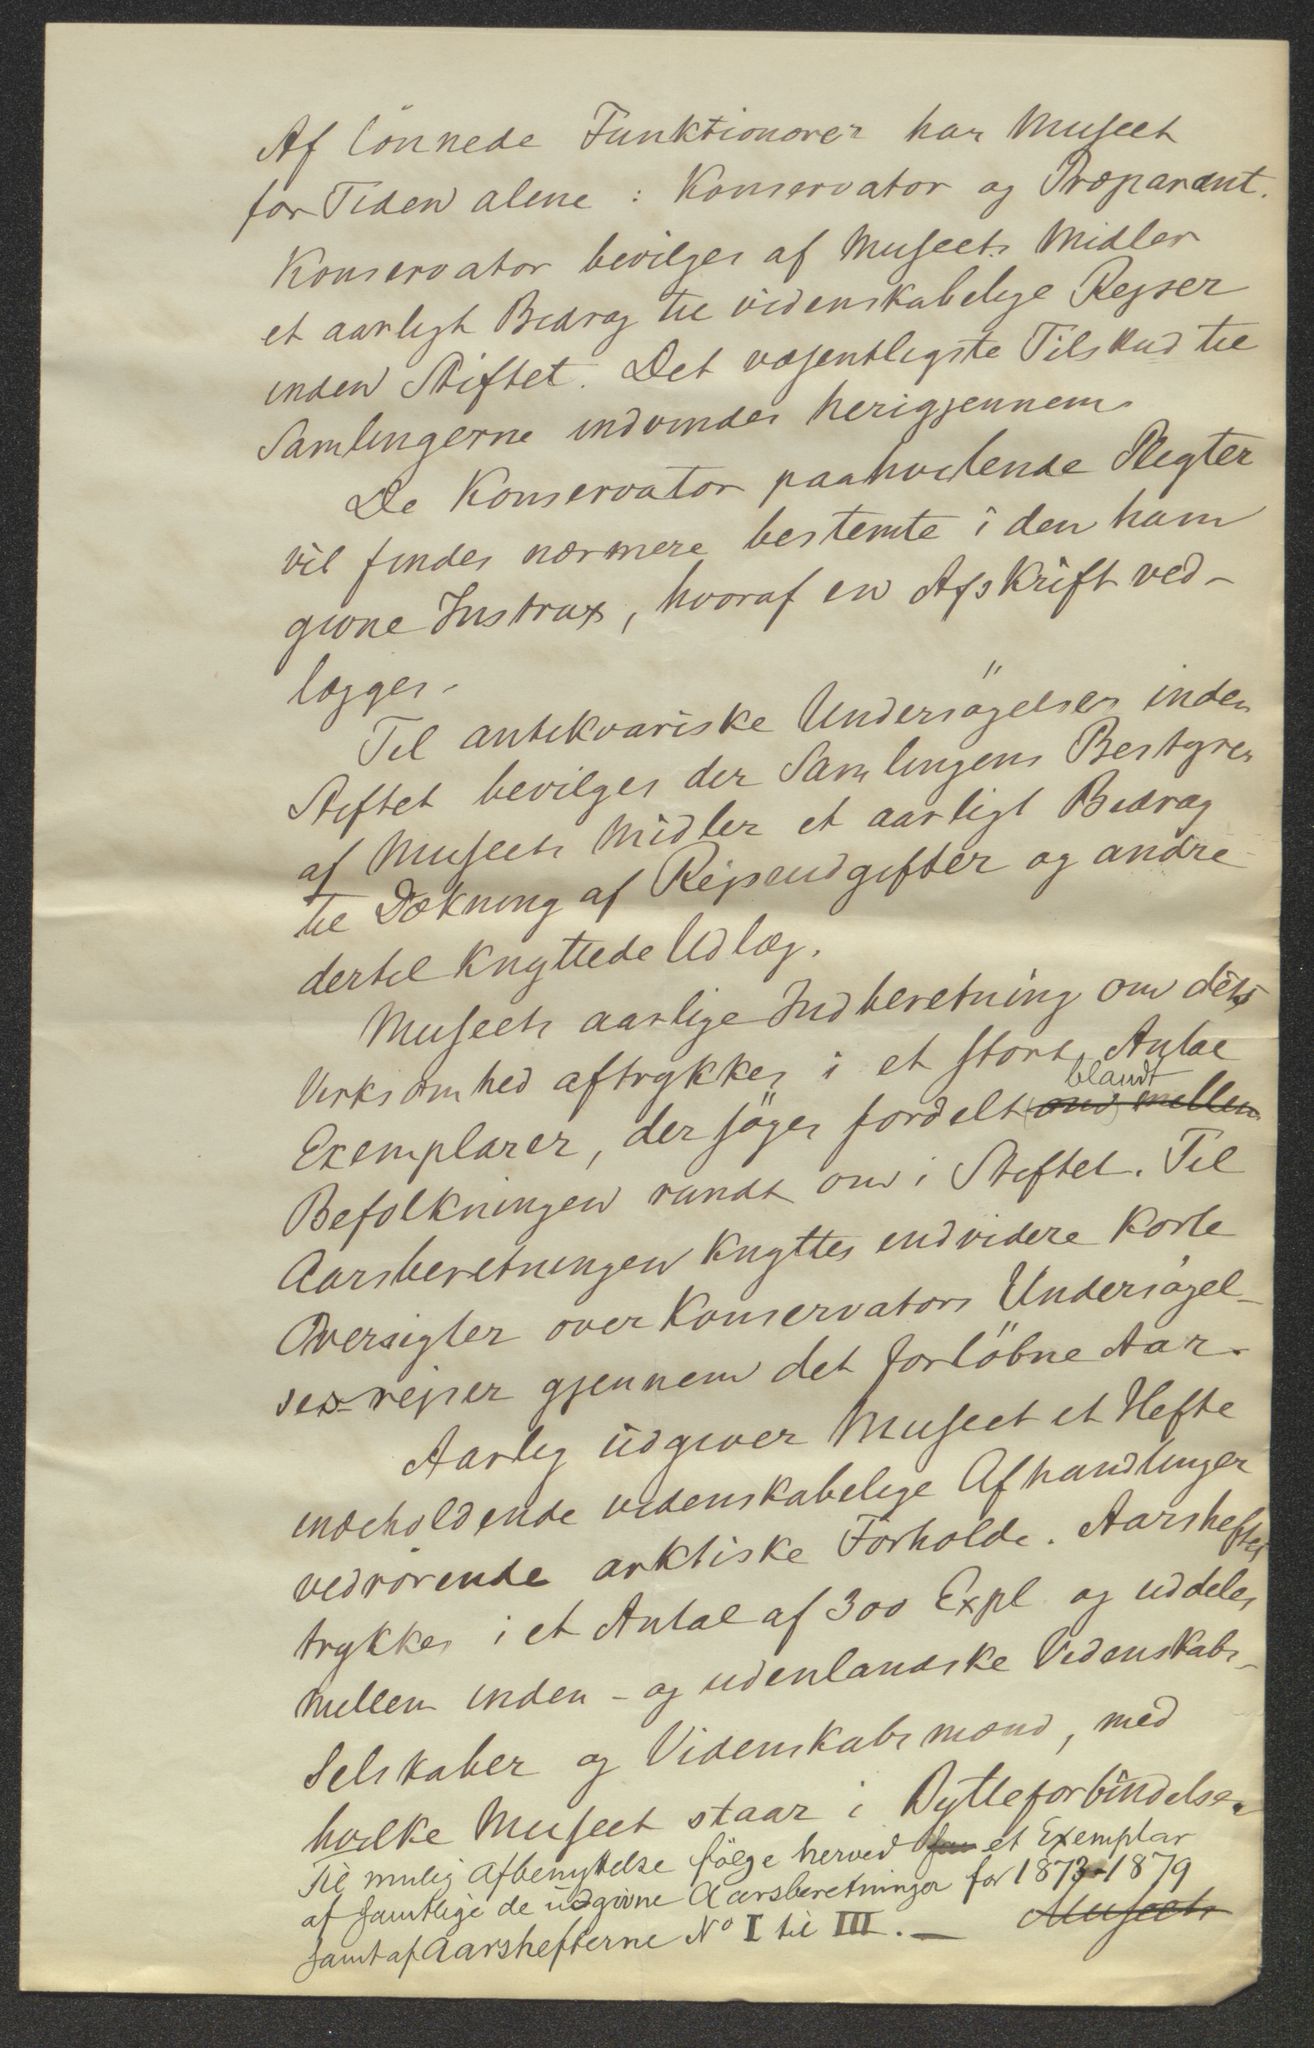 Af lönnede Funktionærer har Museet
for Tiden alene : Konservator og Præparant.
Konservator bevilges af Museets Midler
et aarligt Bidrag til videnskabelige Rejser
inden Stiftet. Det væsentligste Tilskud til
Samlingerne indvindes herigjennem.
De Konservator paahvilende Pligter
vil findes nærmere bestemte i den ham
givne Instrux, hvoraf en Afskrift ved-
lægges.
Til antikvariske Undersögelser inden
Stiftet bevilges der Samlingens Bestyrer
af Museets Midler et aarligt Bidrag
til Dækning af Rejseudgifter og andre
dertil knyttede Udlæg.
Museets aarlige Indberetning om dets
Virksomhed aftrykkes i et stort Antal
blandt
Exemplarer, der söges fordelt (om) mellem
Befolkningen rundt om i Stiftet. Til
Aarsberetningen knyttes endvidere korte
Oversigter over Konservators Undersögel-
sesrejser gjennem det forlöbne Aar.
Aarlig udgiver Museet et Hefte
indeholdende videnskabelige Afhandlinger
vedrörende arktiske Forholde. Aarsheftet
trykkes i et Antal af 300 Expl og uddeles
mellem inden- og udenlandske Videnskabs-
Selskaber og Videnskabsmænd, med
hvilke Museet staar i Bytteforbindelse.
Til mulig Afbenyttelse fölge herved et Exemplar
af samtlige de udgivne Aarsberetninger for 1873-1879
samt af Aarshefterne No I til III. — Museets